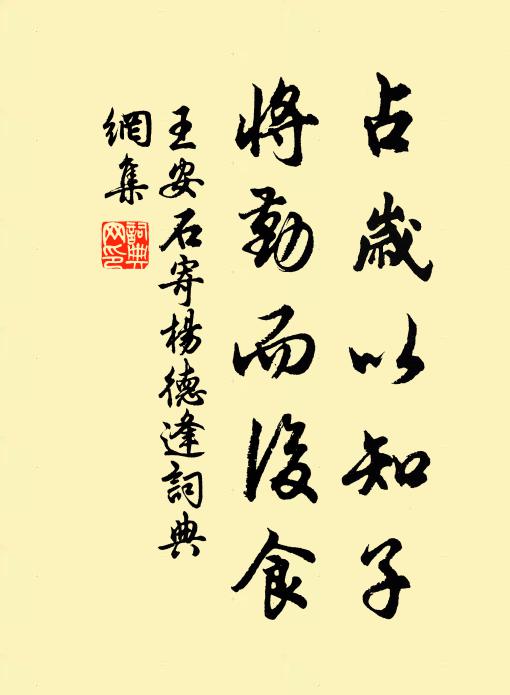 占歲以知子
將勤而後食
王安石寄楊德逢詞典
網集
詞典
网印